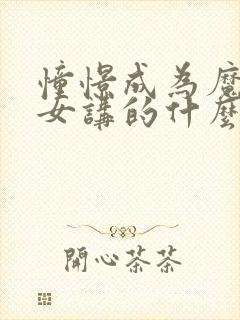 憧憬成為魔
女講的什麼
開心茶茶